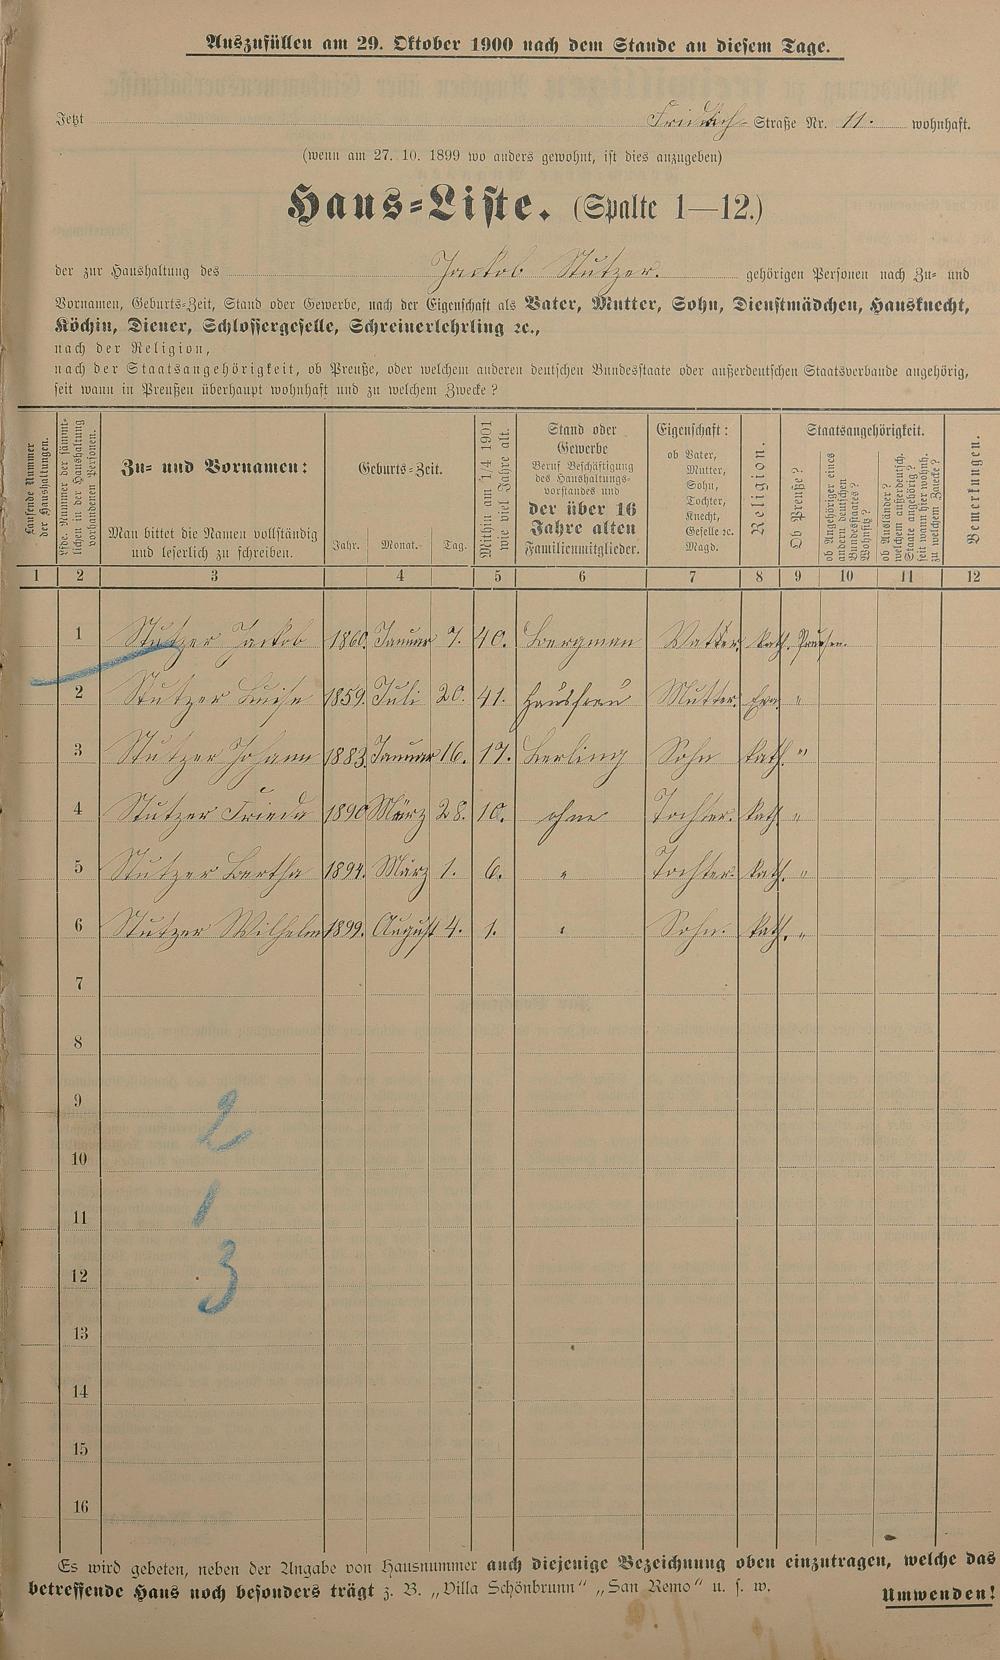 Auszufüllen am 29. Oktober 1900 nach dem Stande an diesem Tage.
Jetzt Fridrich- Straße Nr. 11. wohnhaft.
(wenn am 27. 10. 1899 wo anders gewohnt, ist dies anzugeben)
Haus-Liste. (Spalte 1—12.)
der zur Haushaltung des Jackob Stutzer. gehörigen Personen nach Zu- und
Vornamen, Geburts-Zeit, Stand oder Gewerbe, nach der Eigenschaft als Vater, Mutter, Sohn, Dienstmädchen, Hausknecht,
Köchin, Diener, Schlossergeselle, Schreinerlehrling ec.,
nach der Religion,
nach der Staatsangehörigkeit, ob Preuße, oder welchem anderen deutschen Bundesstaate oder außerdeutschen Staatsverbande angehörig,
seit wann in Preußen überhaupt wohnhaft und zu welchem Zwecke?
Laufende Nummer der Haushaltungen.
Lfde. Nummer der sämmtlichen in der Haushaltung vorhandenen Personen.
Zu- und Vornamen:
Man bittet die Namen vollständig
und leserlich zu schreiben.
Geburts-Zeit.
Jahr. Monat. Tag.
Mithin am 1/4 1901 wie viel Jahre alt.
Stand oder
Gewerbe
Beruf Beschäftigung
des Haushaltungs-
vorstandes und
der über 16
Jahre alten
Familienmitglieder.
Eigenschaft:
ob Vater,
Mutter,
Sohn,
Tochter,
Knecht,
Geselle ec.
Magd.
Religion.
Staatsangehörigkeit.
Ob Preuße?
ob Angehöriger eines andern deutschen Bundesstaates? Wohnsitz?
ob Ausländer? welchem außerdeutsch. Staate angehörig? seit wann hier wohnh. zu welchem Zwecke?
Bemerkungen.
1 2 3 4 5 6 7 8 9 10 11 12
1 Stutzer Jackob 1860. Januar 7. 40. Bergman Vatter. kath. Preusen.
2 Stutzer Luise 1859. Juli 20. 41. Hausfrau Mutter. Eva. "
3 Stutzer Johann 1883. Januar 16. 17. Lerling Sohn kath. "
4 Stutzer Frieda 1890 März 28. 10. ohne Tochter. kath. "
5 Stutzer Bertha 1894. März 1. 6. " Tochter. kath. "
6 Stutzer Wilhelm 1899. August 4. 1. " Sohn. kath. "
7
8
9
2
10
11
1
12
3
13
14
15
16
Es wird gebeten, neben der Angabe von Hausnummer auch diejenige Bezeichnung oben einzutragen, welche das
betreffende Haus noch besonders trägt z. B. „Villa Schönbrunn“ „San Remo“ u. s. w.
Umwenden!